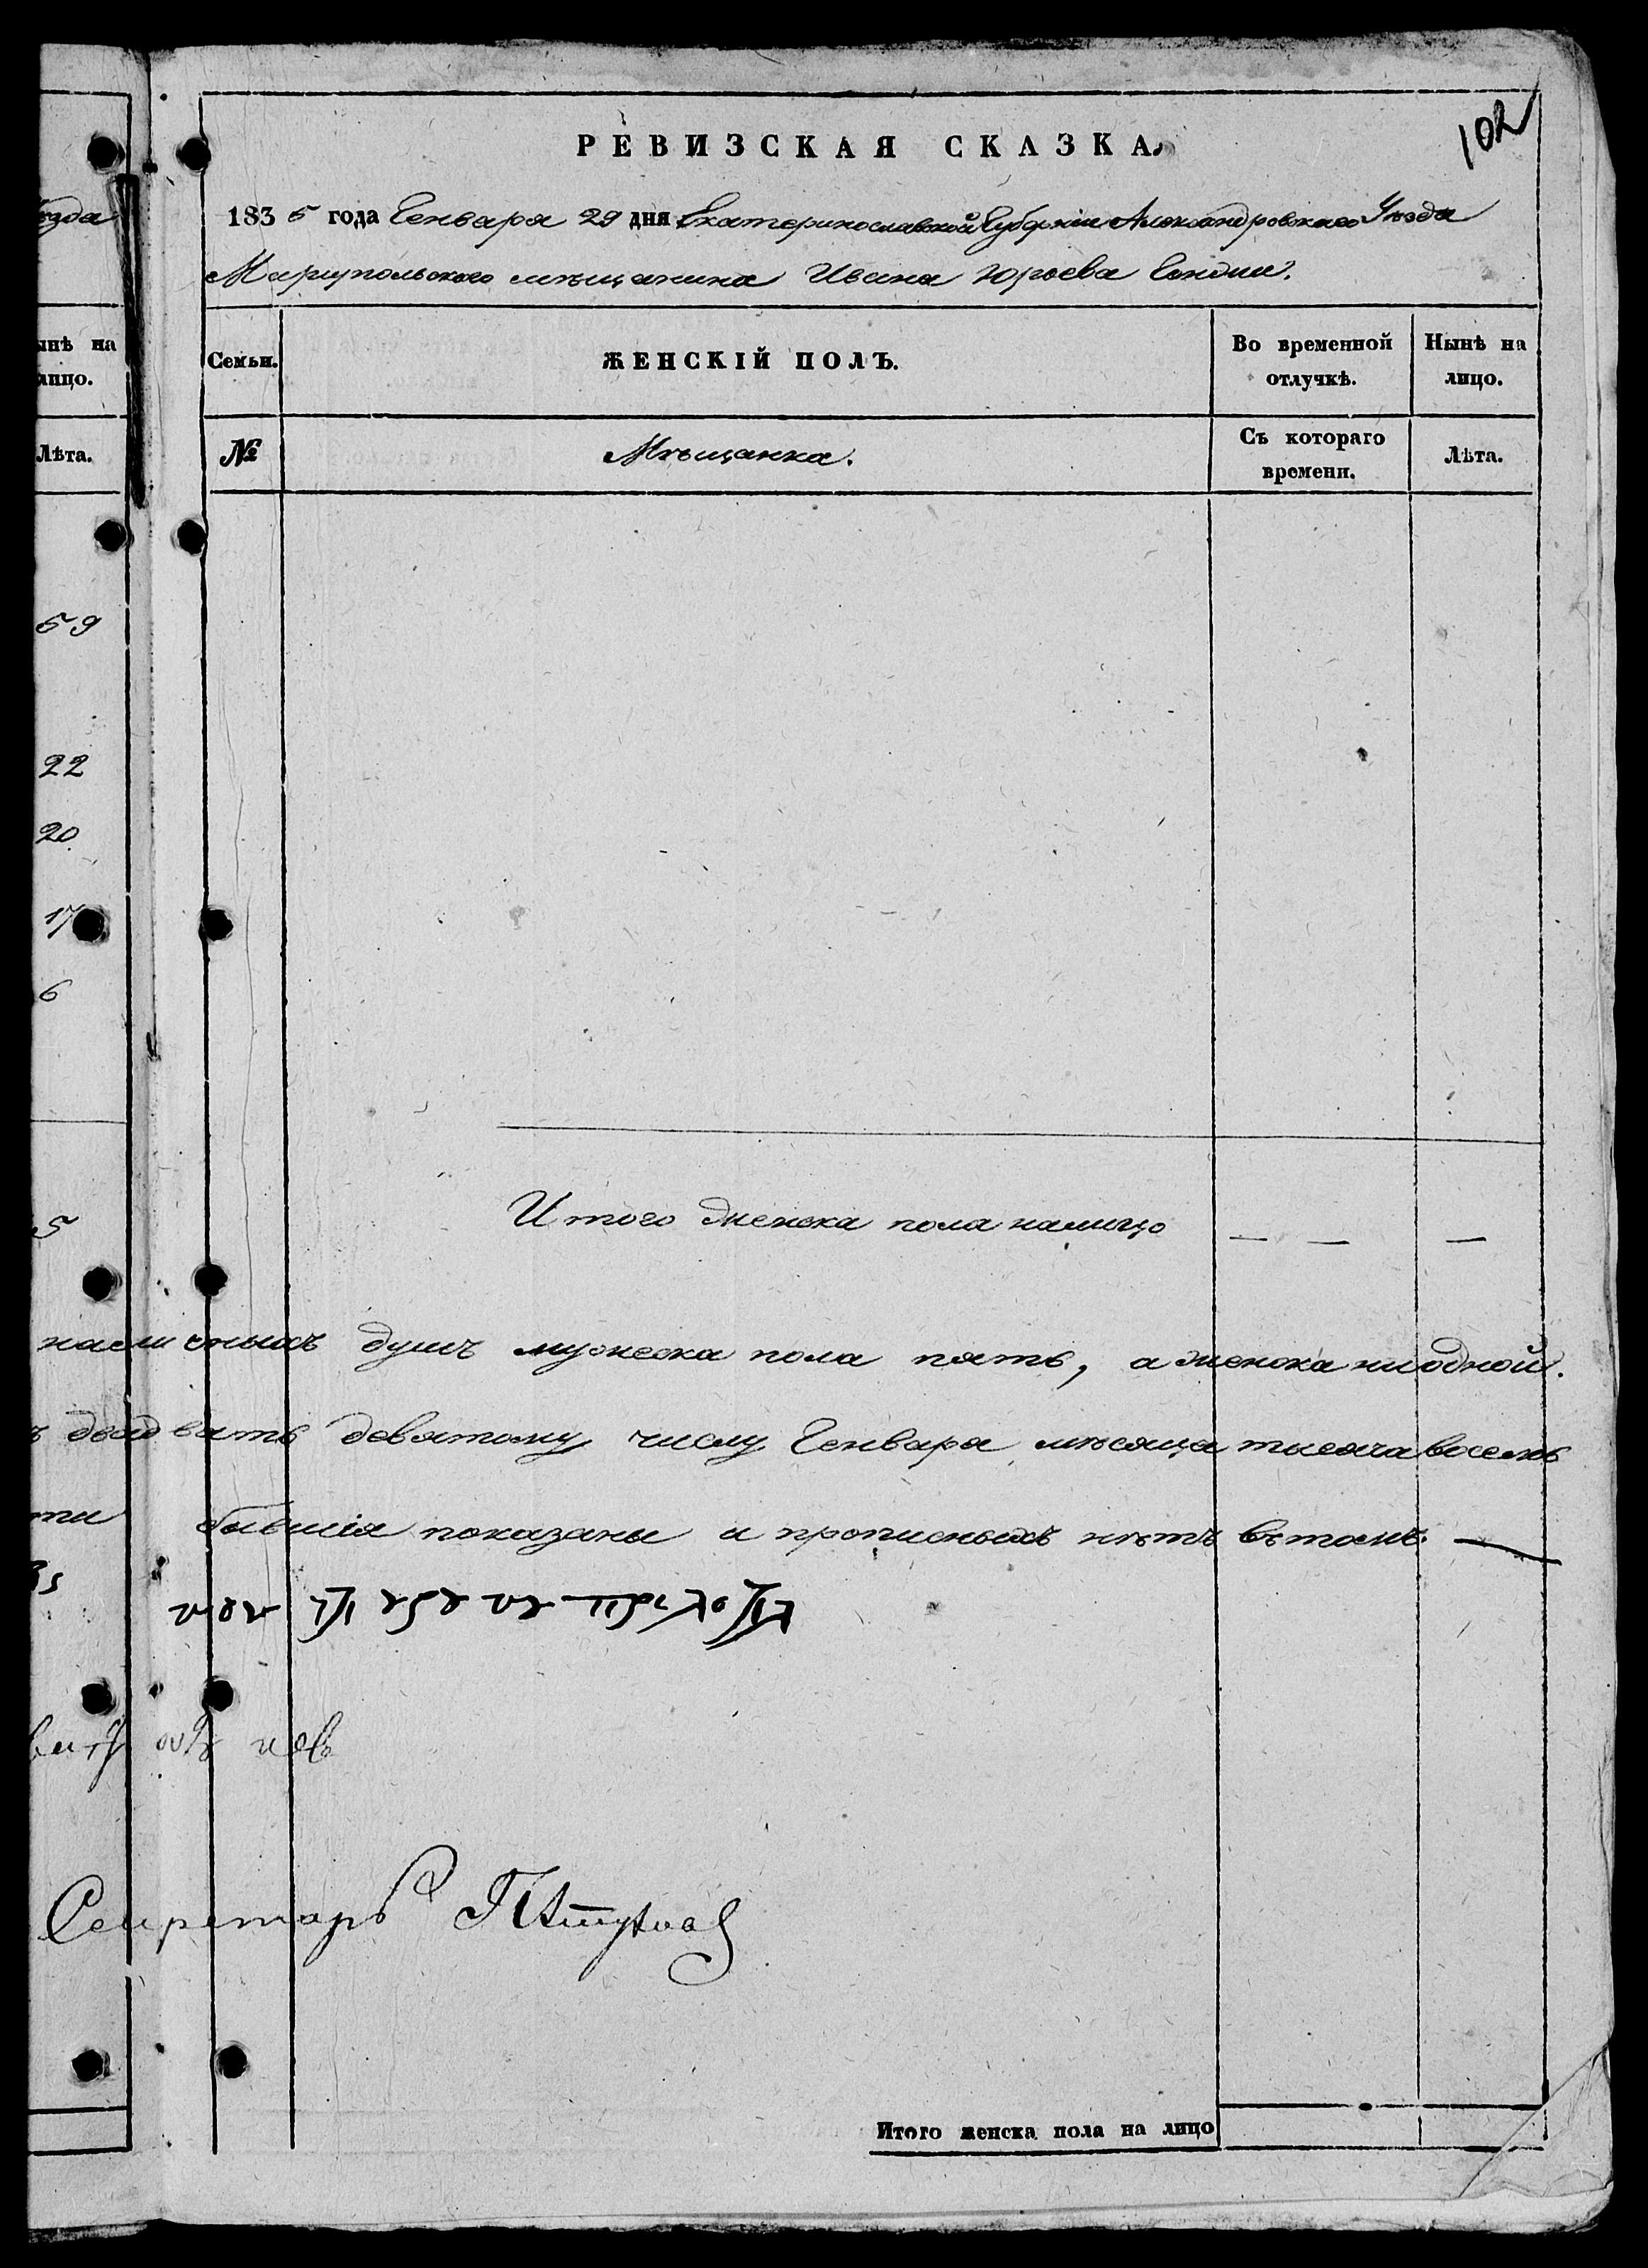 102
РЕВИЗСКАЯ СКАЗКА
1835 года Генваря 29 дня Екатеринославской Губерніи Александровскаго Уѣзда
Маріупольского мѣщанина Ивана Юрьева
Семьи.
ЖЕНСКІЙ ПОЛЪ.
Во временной отлучкѣ.
Нынѣ на лицо.
№
Мѣщанка.
Съ котораго времени.
Лѣта.
ѣзда
ынѣ на
лицо.
Лѣта.
59
22
20
17
6
5
Итого женска пола налицо — — —
наличныхъ душъ мужеска пола пять, а женска ниодной.
ъ двадцать девятому числу Генваря мѣсяца тысяча восемь
бывшія показаны и прописныхъ нѣтъ вътомъ.
Секретарь
Итого женска пола на лицо